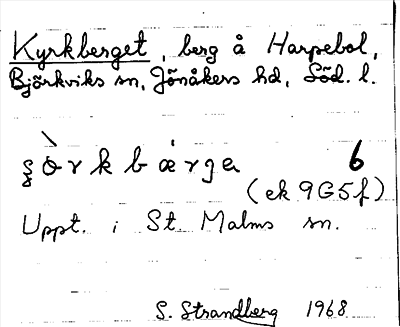 Kyrkberget, berg å Harpebol,
Björkviks sn, Jönåkers hd, Söd. l.
§òrkbárga 6
(ek 9G5f)
Uppt. i St Malms sn.
S. Strandberg 1968